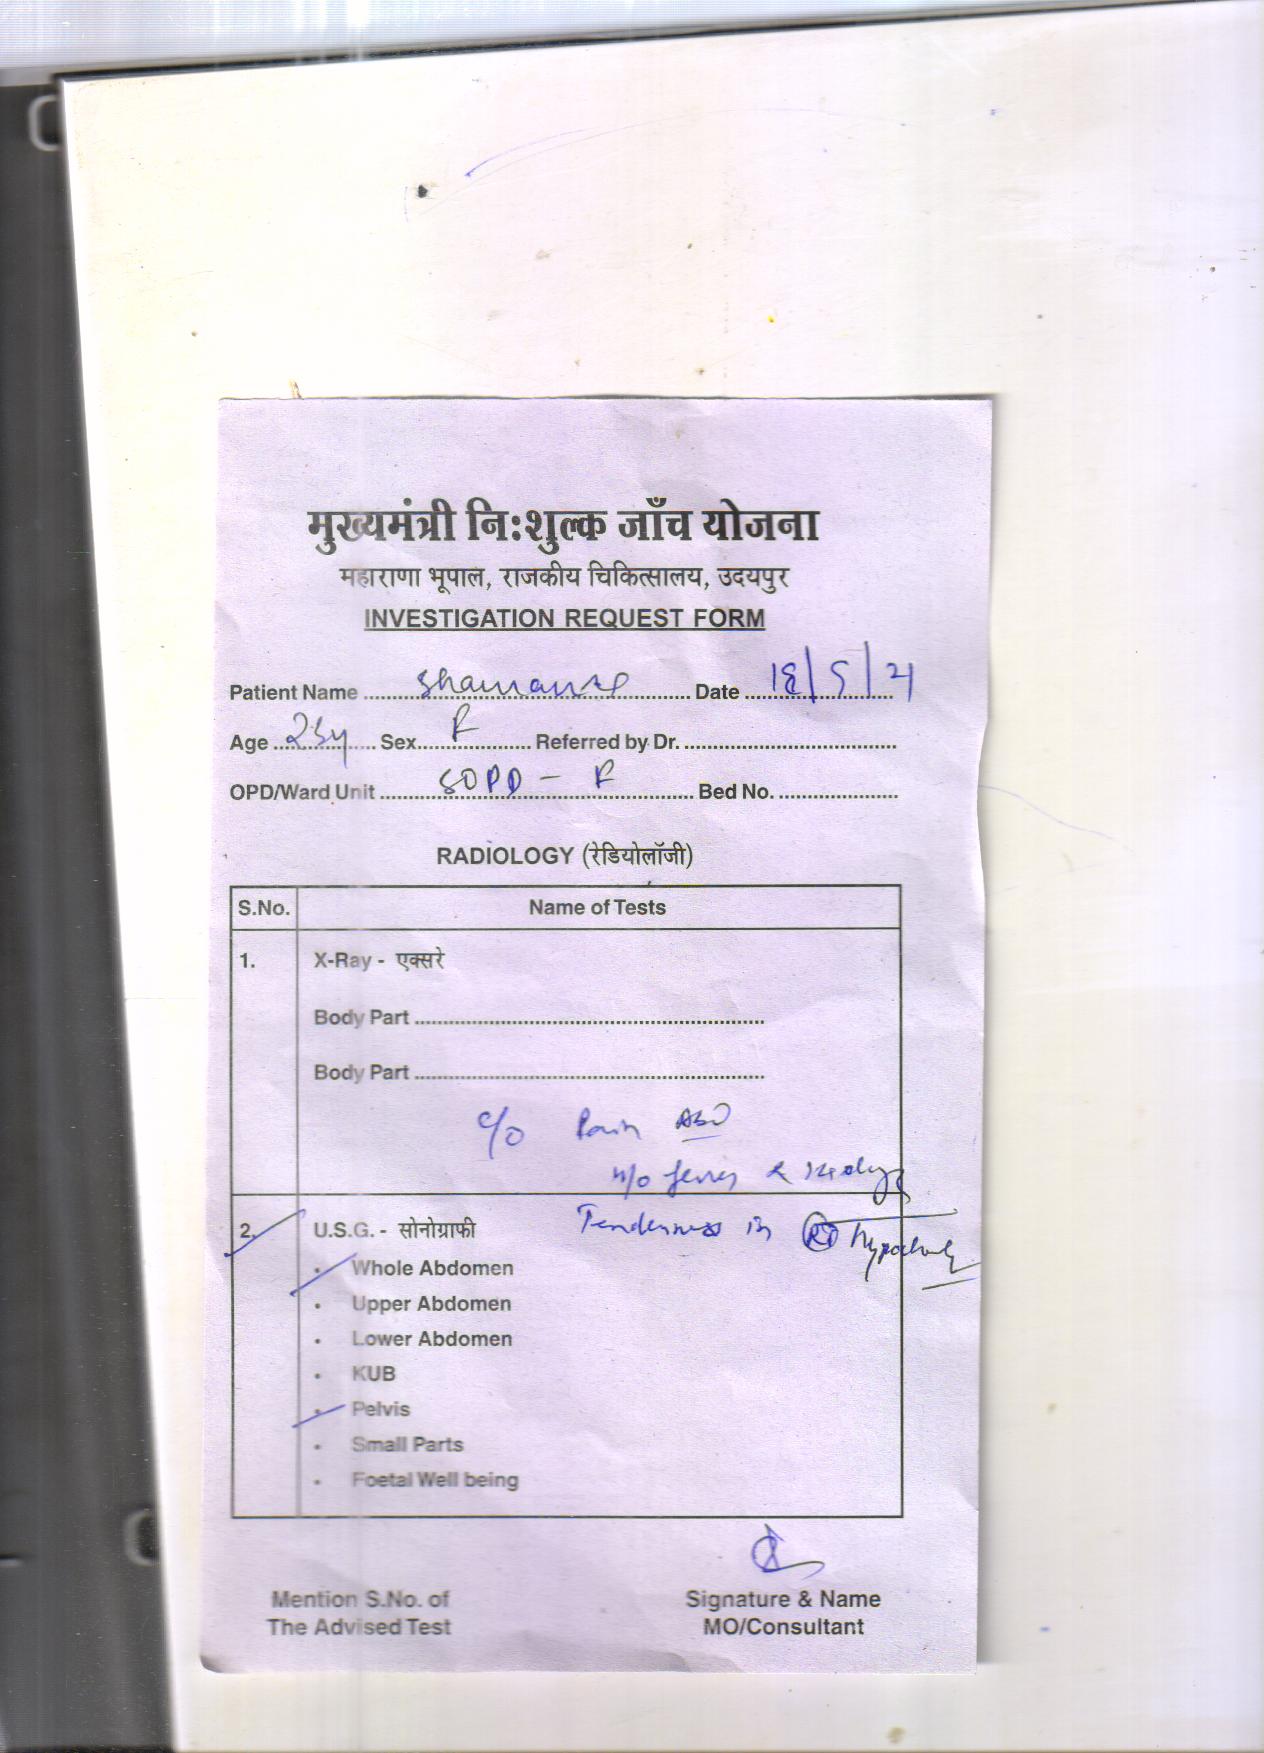 मुख्यमंत्री निःशुल्क जाँच योजना
महाराणा भूपाल, राजकीय चिकित्सालय, उदयपुर
INVESTIGATION REQUEST FORM
Patient Name .......... Date 18/5/21
Age 23y Sex F Referred by Dr. ..........
OPD/Ward Unit SOPD - F Bed No. ..........
RADIOLOGY (रेडियोलॉजी)
S.No. Name of Tests
1. X-Ray - एक्सरे
Body Part ..........
Body Part ..........
c/o Pain ABD
2. U.S.G. - सोनोग्राफी Tenderness in RT
• Whole Abdomen
• Upper Abdomen
• Lower Abdomen
• KUB
• Pelvis
• Small Parts
• Foetal Well being
Mention S.No. of Signature & Name
The Advised Test MO/Consultant